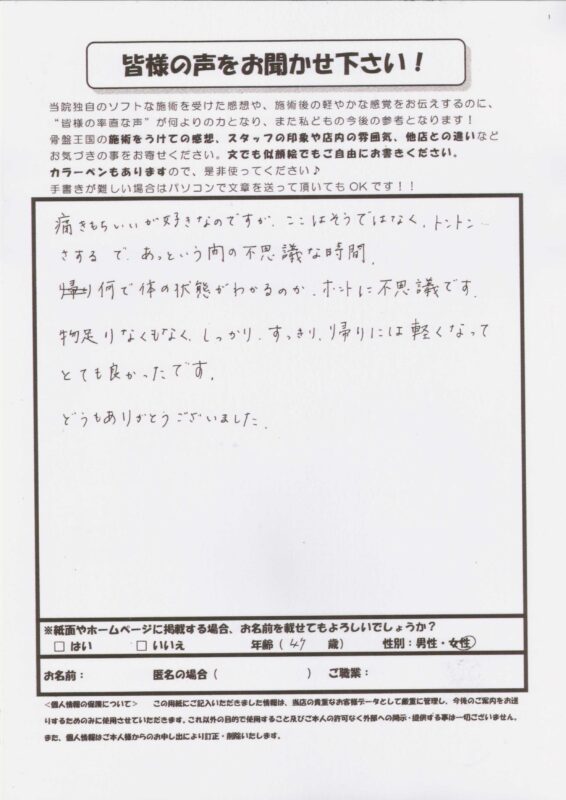 皆様の声をお聞かせ下さい！
当院独自のソフトな施術を受けた感想や、施術後の軽やかな感覚をお伝えするのに、
“皆様の率直な声”が何よりの力となり、また私どもの今後の参考となります！
骨盤王国の施術をうけての感想、スタッフの印象や店内の雰囲気、他店との違いなど
お気づきの事をお寄せください。文でも似顔絵でもご自由にお書きください。
カラーペンもありますので、是非使ってください♪
手書きが難しい場合はパソコンで文章を送って頂いてもOKです！！
痛きもちいいが好きなのですが、ここはそうではなく、トントン…
さするで、あっという間の不思議な時間。
何で体の状態がわかるのか、ホントに不思議です。
物足りなくもなく、しっかり、すっきり、帰りには軽くなって
とても良かったです。
どうもありがとうございました。
※紙面やホームページに掲載する場合、お名前を載せてもよろしいでしょうか？
□はい □いいえ 年齢（47 歳） 性別：男性・女性
お名前： 匿名の場合（ ） ご職業：
＜個人情報の保護について＞ この用紙にご記入いただきました情報は、当店の貴重なお客様データとして厳重に管理し、今後のご案内をお送
りするためのみに使用させていただきます。これ以外の目的で使用すること及びご本人の許可なく外部への開示・提供する事は一切ございません。
また、個人情報はご本人様からのお申し出により訂正・削除いたします。